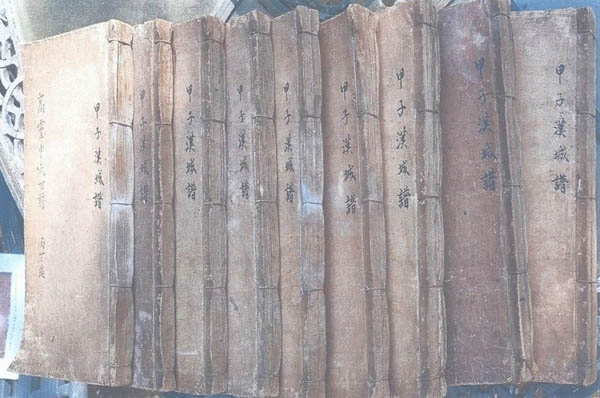 甲子漢城譜
甲子漢城譜
甲子漢城譜
甲子漢城譜
甲子漢城譜
甲子漢城譜
甲子漢城譜
甲子漢城譜
甲子漢城譜
高靈申氏世譜